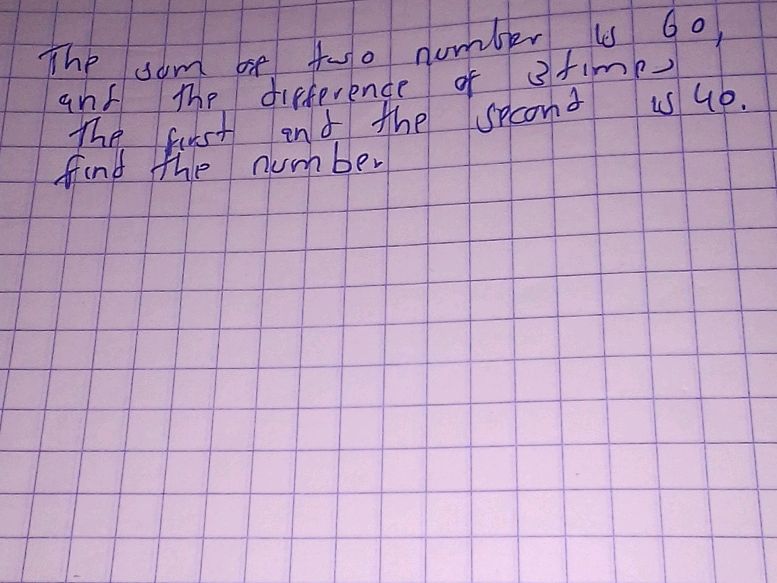 The sum of two number is 60,
and the difference of 3 times
the first and the second is 40.
find the number